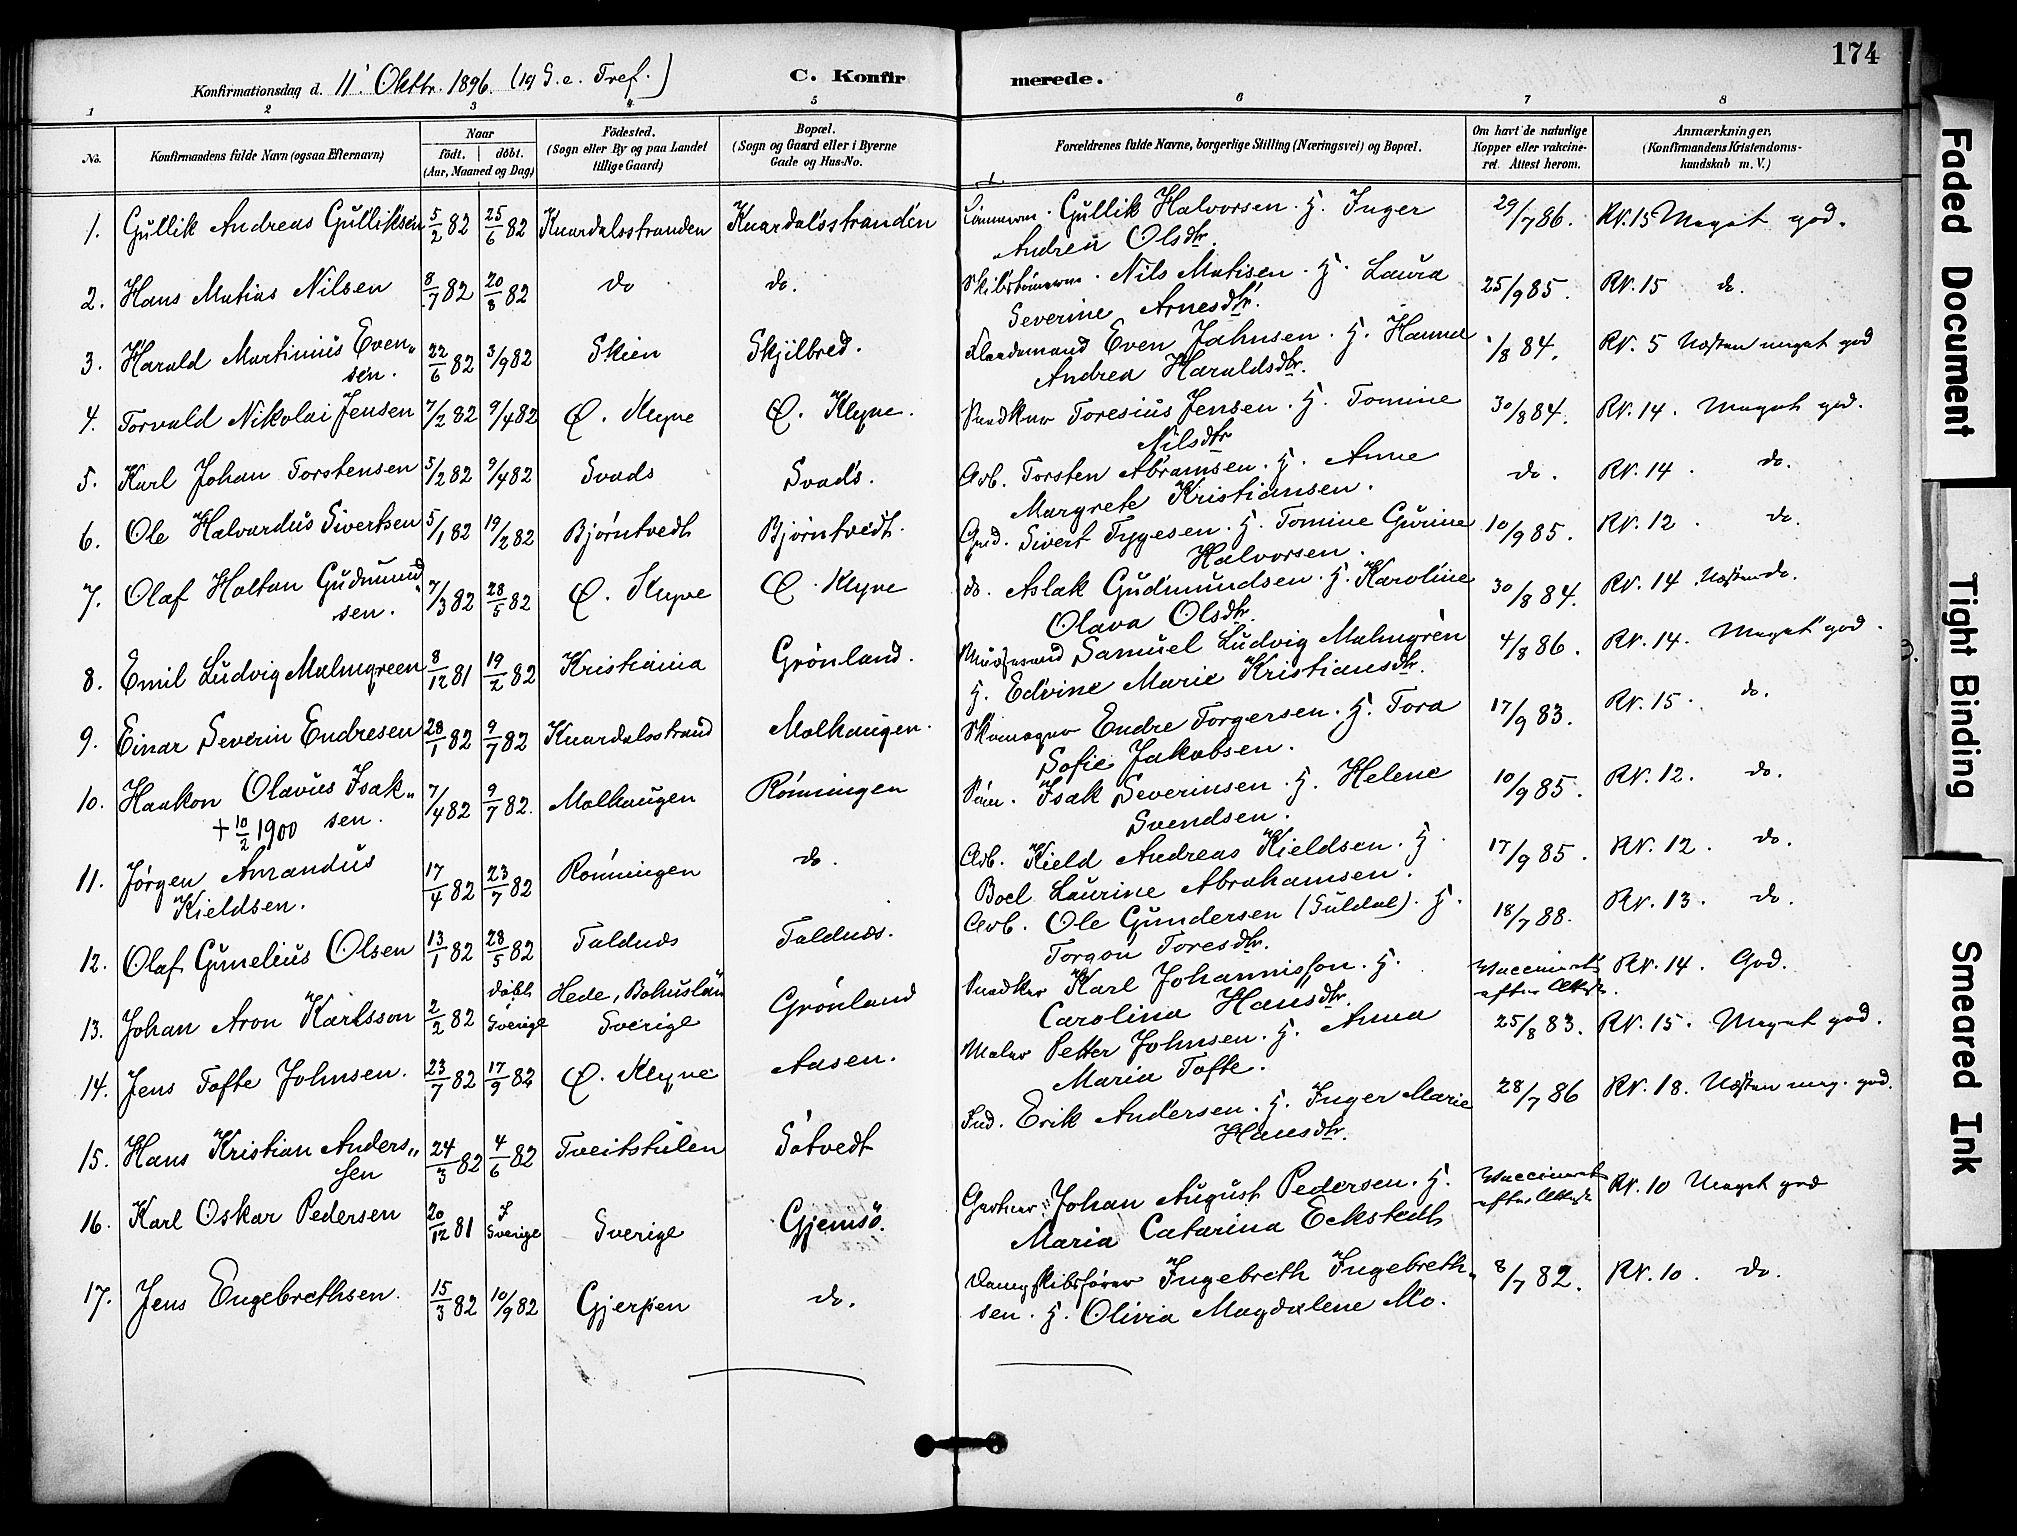 174
Konfirmationsdag d. 11' Oktbr. 1896. (19 S. e. Tref.)
C. Konfir merede.
1 2 3 4 5 6 7 8
No.
Konfirmandens fulde Navn (ogsaa Efternavn)
Naar
födt. döbt.
(Aar, Maaned og Dag)
Födested.
(Sogn eller By og paa Landet
tillige Gaard)
Bopæl.
(Sogn og Gaard eller i Byerne
Gade og Hus-No.
Forældrenes fulde Navne, borgerlige Stilling (Næringsvei) og Bopæl.
Om havt de naturlige
Kopper eller vakcine-
ret. Attest herom.
Anmærkninger,
(Konfirmandens Kristendoms-
kundskab m. V.)
1. Gullik Andreas Gulliksen 5/2 82 25/6 82 Knardalsstranden Knardalsstranden Tömmerm. Gullik Halvorsen. H. Inger 29/7 86. Rv. 15 Meget god.
Andrea Olsdtr.
2. Hans Matias Nilsen 8/7 82 20/8 82 do do. Skibstömrm. Nils Matisen. H. Laura 25/9 85. Rv. 15 do.
Severine Arnesdtr.
3. Harald Martinius Even„ 22/6 82 3/9 82 Skien Skjilbred. Even Jahnsen. H. Hanna /8 84. Rv. 5 Næsten meget god
sen. Andrea Haraldsdtr.
4. Torvald Nikolai Jensen 7/2 82 9/4 82 Ø. Klyve Ø. Klyve. Snedker Toresius Jensen. H. Tomine 30/8 84. Rv. 14. Meget god.
Nilsdtr
5. Karl Johan Torstensen 5/2 82 9/4 82 Svads Svads. Arb. Torsten Abramsen. H. Anne do. Rv. 14. do.
Margrete Kristiansen.
6. Ole Halvardus Sivertsen 5/1 82 19/2 82 Bjørntvedt Bjørntvedt. Grd. Sivert Tygesen. H. Tomine Gurine 10/9 85. Rv. 12. do.
Halvorsen.
7. Olaf Holtan Gudmund„ 7/3 82 28/5 82 Ø. Klyve Ø. Klyve do. Aslak Gudmundsen. H. Karoline 30/8 84. Rv. 14 Næsten do.
sen. Olava Olsdtr.
8. Emil Ludvig Malmgreen 8/12 81 19/2 82 Kristiania Grönland. Samuel Ludvig Malmgren 4/8 86. Rv. 14. Meget god.
H. Edvine Marie Kristiansdtr.
9. Einar Severin Endresen 28/1 82 9/7 82 Knardalsstrand Molhaugen. Skomager Endre Torgersen. H. Tora 17/9 83. Rv. 15. do.
Sofie Jakobsen.
10. Haakon Olavus Isak„ 7/4 82 9/7 82. Molhaugen Rönningen Töm. Isak Severinsen. H. Helene 10/9 85. Rv. 12. do.
+ 10/2 1900 sen. Svendsen.
11. Jörgen Amandus 17/4 82 23/7 82 Rönningen do. Arb. Kield Andreas Kieldsen. H. 17/9 85. Rv. 12. do.
Kieldsen. Boel Laurine Abrahamsen.
12. Olaf Gunelius Olsen 13/1 82 28/5 82 Faldnæs Faldnæs. Arb. Ole Gundersen (Suldal). H. 18/7 88. Rv. 13. do.
Torgon Toresdtr.
13. Johan Aron Karlsson 2/2 82 döbt Sverige Hede, Bohuslän Sverige Grönland Snedker Karl Johannisson. H. Vaccineret efter Attest. Rv. 14. God.
Carolina Hansdtr.
14. Jens Tofte Johnsen. 23/7 82 17/9 82 Ø. Klyve Aasen. Maler Petter Johnsen. H. Anna 25/8 83. Rv. 15. Meget god.
Maria Tofte.
15. Hans Kristian Anders„ 24/3 82 4/6 82 Tveitstulen Sötvedt Ind. Erik Andersen. H. Inger Marie 28/7 86 Rv. 18. Næsten meg. god.
sen Hansdtr.
16. Karl Oskar Pedersen 20/12 81 I Sverige Sverige Gjemsö. Gartner Johan August Pedersen. H. Vaccineret efter Attest Rv. 10 Meget god
Maria Catarina Eckstedt
17. Jens Engebrethsen. 15/3 82 10/9 82 Gjerpen do. Dampskibsförer Ingebreth Ingebreth„ 8/7 82. Rv. 10. do.
sen. H. Olivia Magdalene Mo.
Faded Document
Tight Binding
Smeared Ink